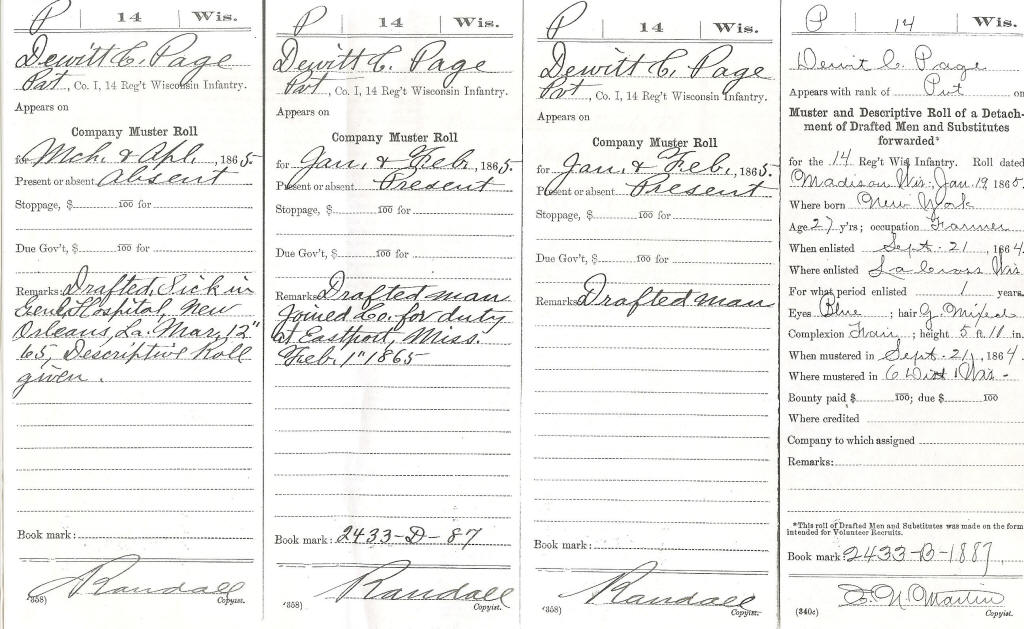 P | 14 | Wis.
Dewitt C. Page
Pvt, Co. I, 14 Reg't Wisconsin Infantry.
Appears on
Company Muster Roll
for Mch. & Apl., 1865.
Present or absent Absent
Stoppage, $ 100 for
Due Gov't, $ 100 for
Remarks: Drafted, Sick in
Genl Hospital, New
Orleans, La. Mar. 12"
65, Descriptive Roll
given.
Book mark:
Randall
(358) Copyist.
P | 14 | Wis.
Dewitt C. Page
Pvt, Co. I, 14 Reg't Wisconsin Infantry.
Appears on
Company Muster Roll
for Jan. & Feb., 1865.
Present or absent Present
Stoppage, $ 100 for
Due Gov't, $ 100 for
Remarks: Drafted man
joined Co. for duty
at Eastport, Miss.
Feb. 1" 1865
Book mark: 2433-D-87
Randall
(358) Copyist.
P | 14 | Wis.
Dewitt C. Page
Pvt, Co. I, 14 Reg't Wisconsin Infantry.
Appears on
Company Muster Roll
for Jan. & Feb., 1865.
Present or absent Present
Stoppage, $ 100 for
Due Gov't, $ 100 for
Remarks: Drafted man
Book mark:
Randall
(358) Copyist.
P | 14 | Wis.
Dewit C. Page
Appears with rank of Pvt on
Muster and Descriptive Roll of a Detach-
ment of Drafted Men and Substitutes
forwarded*
for the 14 Reg't Wis. Infantry. Roll dated
Madison Wis., Jan. 19, 1865.
Where born New York
Age 27 y'rs; occupation Farmer
When enlisted Sept. 21, 1864.
Where enlisted La Cross Wis.
For what period enlisted 1 years.
Eyes Blue; hair G. Mixed
Complexion Fair; height 5 ft 11 in.
When mustered in Sept. 21, 1864.
Where mustered in 6 Dist Wis.
Bounty paid $ 100; due $ 100
Where credited
Company to which assigned
Remarks:
*This roll of Drafted Men and Substitutes was made on the form
intended for Volunteer Recruits.
Book mark: 2433-B-1887
Martin
(340c) Copyist.